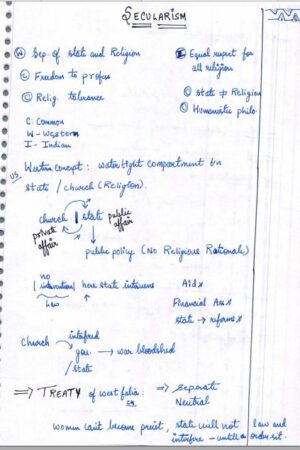 SECULARISM
(W) Sep. of state and Religion
(I) Equal respect for all religion
(C) Freedom to profess
(C) Relig. tolerance
(C) state ≠ Religion
(C) Humanistic philo.
C: Common
W - Western
I - Indian
US
Western Concept: watertight compartment b/n
state / church (Religion).
church | state public affair
private affair
public policy (No Religious Rationale)
no
intervention) have state intervenes
law
Aid x
Financial Ass x
state → reforms x
Church interfered
gov. → war bloodshed
/ state
⇒ TREATY of west falia: ⇒ Separate
Neutral
women can't become priest, state will not
interfere - until law and order sit.